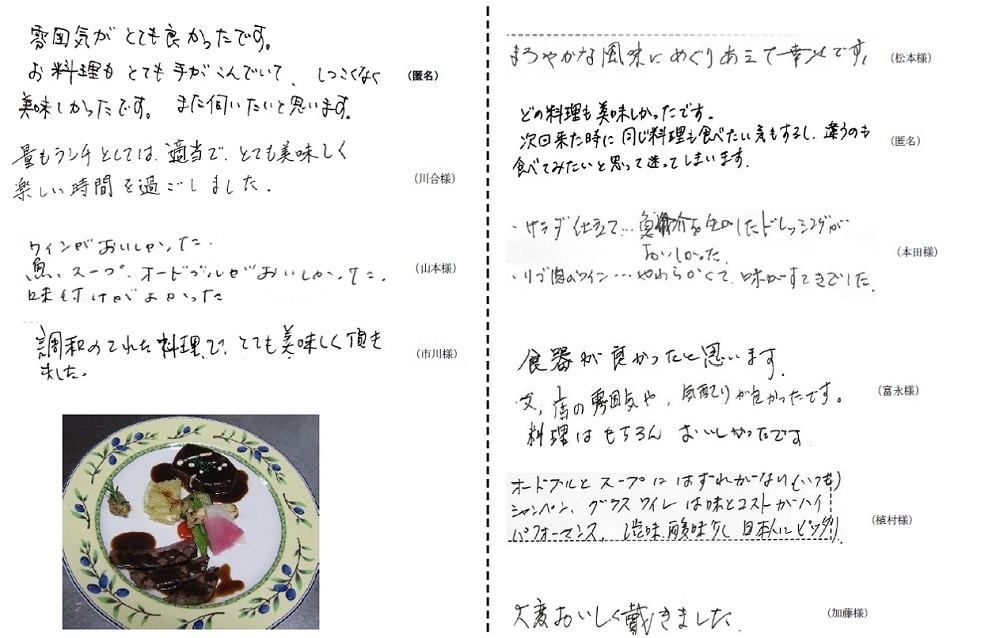 雰囲気がとても良かったです。
お料理もとても手がこんでいて、しつこくなく
美味しかったです。また伺いたいと思います。
(匿名)
量もランチとしては、適当で、とても美味しく
楽しい時間を過ごしました。
(川合様)
ワインがおいしかった。
魚、スープ、オードブルがおいしかった。
味付けがよかった
(山本様)
調和のとれた料理で、とても美味しく頂き
ました。
(市川様)
まろやかな風味にめぐりあえて幸せです。
(松本様)
どの料理も美味しかったです。
次回来た時に同じ料理も食べたい気もするし、違うのも
食べてみたいと思って迷ってしまいます。
(匿名)
・サラダ仕立て…魚介を生かしたドレッシングが
おいしかった。
・リブ肉のワイン…やわらかくて、味がすてきでした。
(本田様)
食器が良かったと思います。
又、店の雰囲気や、気配りが良かったです。
料理はもちろんおいしかったです
(富永様)
オードブルとスープにはずれがない(いつも)
シャンペン、グラスワインは味とコストがハイ
パフォーマンス、渋味、酸味少し日本人にピッタリ
(植村様)
大変おいしく戴きました。
(加藤様)